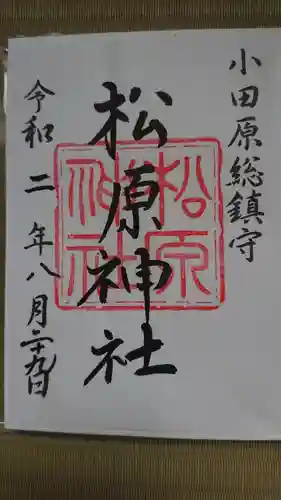 小田原総鎮守
松原神社
令和二年八月二十九日
松原
神社